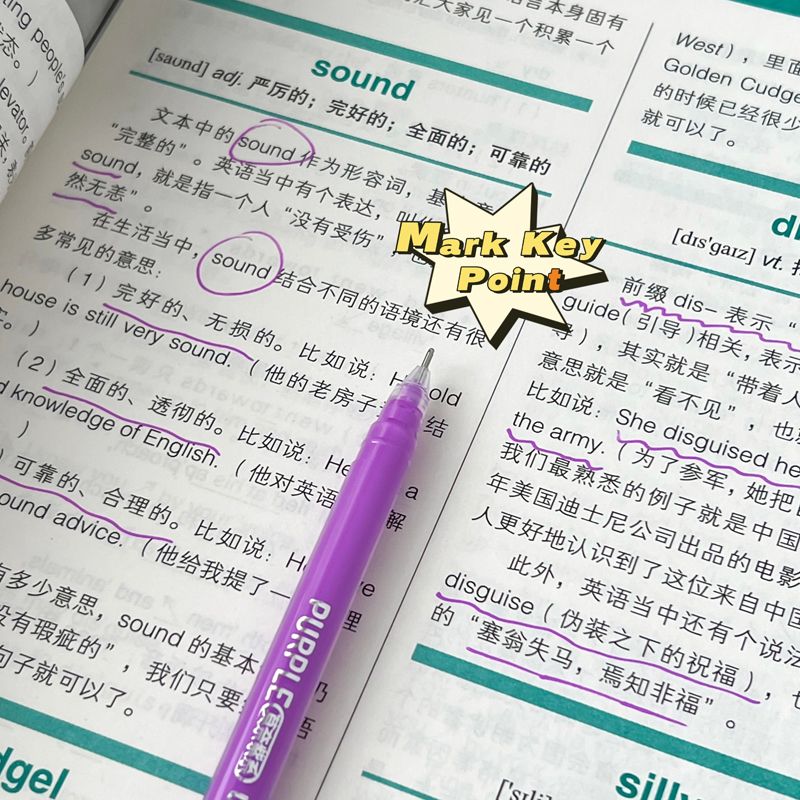 ting people's
态。）
levator.
言本身固有
汇大家见一个积累一个
sound
[saund] adj. 严厉的；完好的；全面的；可靠的
文本中的 sound 作为形容词，基
“完整的”。英语当中有个表达，叫
sound，就是指一个人“没有受伤”
然无恙”。
在生活当中，sound 结合不同的语境还有很
多常见的意思：
（1）完好的、无损的。比如说：H old
house is still very sound.（他的老房子 结
）
（2）全面的、透彻的。比如说：He a
d knowledge of English.（他对英语 解
）
）可靠的、合理的。比如说：He ve
ound advice.（他给我提了一 理
有多少意思，sound 的基本 仍
没有瑕疵的”，我们只要 语
句子就可以了。
dgel
Mark Key
Point
PURPLE
West），里面
Golden Cudge
的时候已经很少
就可以了。
di
[dɪs'gaɪz] vt.
前缀 dis- 表示“
guide（引导）相关，表示
导），其实就是“带着人
意思就是“看不见”，也
比如说：She disguised he
the army.（为了参军，她把
我们最熟悉的例子就是中国
年美国迪士尼公司出品的电影
人更好地认识到了这位来自中国
此外，英语当中还有个说法
disguise（伪装之下的祝福），也
的“塞翁失马，焉知非福”。
silly
['sɪli]